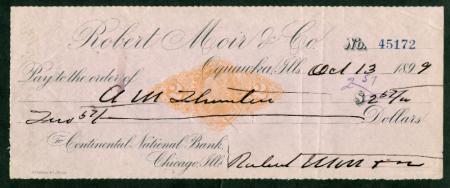 Robert Moir & Co.
No. 45172
Oquawka, Ills. Oct 13 1899
Pay to the order of
A M $2 57/
Two 57/ Dollars
To Continental National Bank,
Chicago, Ills. Robert Moir & Co